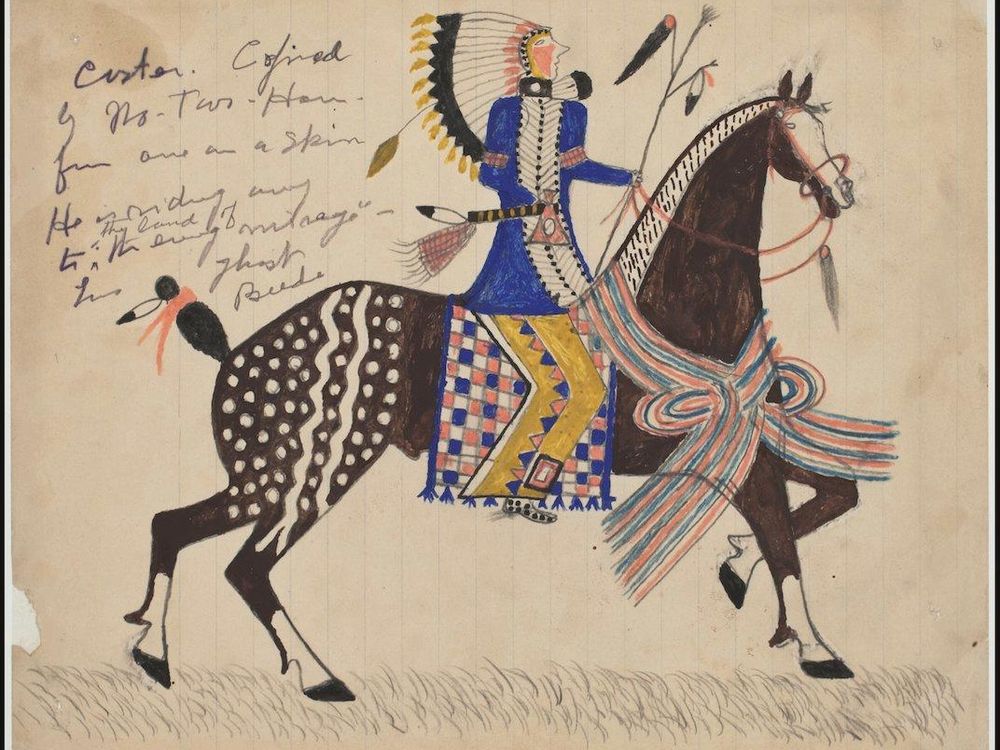 Custer. Copied
by No-Two-Horn.
from one on a skin
He is riding away
to the land of
"the every mirage" -
his ghost
Beede